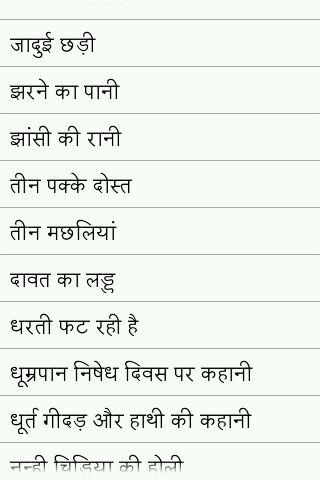 जादुई छड़ी
झरने का पानी
झांसी की रानी
तीन पक्के दोस्त
तीन मछलियां
दावत का लड्डु
धरती फट रही है
धूम्रपान निषेध दिवस पर कहानी
धूर्त गीदड़ और हाथी की कहानी
नन्ही चिड़िया की होली